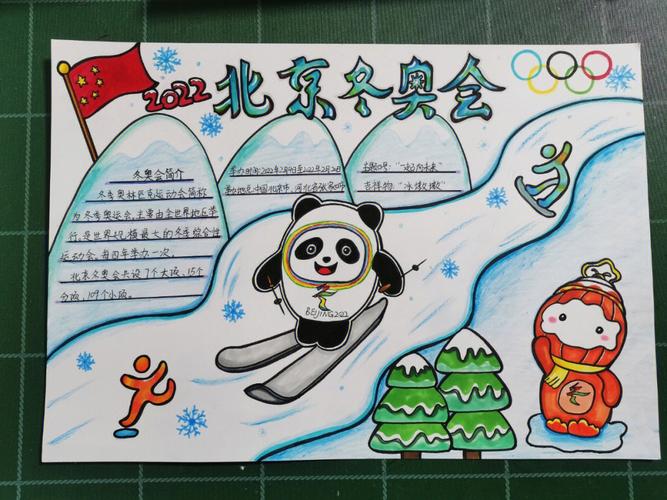 2022 北京冬奥会
冬奥会简介
冬季奥林匹克运动会简称
为冬季奥运会,主要由全世界地区举
行,是世界规模最大的冬季综合性
运动会,每四年举办一次。
北京冬奥会共设7个大项,15个
分项,109个小项。
举办时间:2022年2月4日至2022年2月20日
举办地点:中国北京市、河北省张家口市
主题口号:“一起向未来”
吉祥物:“冰墩墩”
BEIJING2022